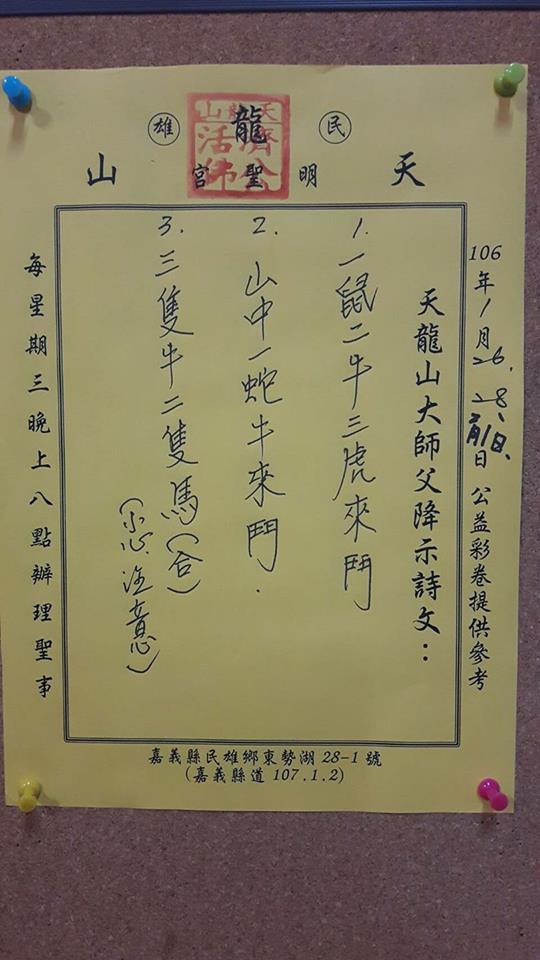 民 龍 雄
天 明聖宮 山
天龍山
濟公
活佛
106年1月26.28、月1日、日 公益彩卷提供參考
天龍山大師父降示詩文：
1. 一鼠二牛三虎來鬥
2. 山中一蛇牛來鬥.
3. 三隻牛二隻馬(合)
(小心注意)
每星期三晚上八點辦理聖事
嘉義縣民雄鄉東勢湖28-1號
(嘉義縣道107.1.2)